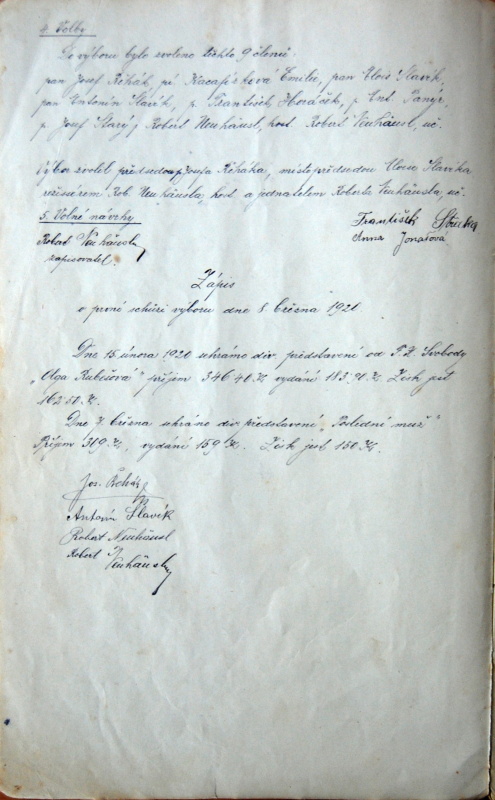 4. Volby
Do výboru bylo zvoleno těchto 9 členů:
pan Josef Řehák, pí Emilie, pan Alois Slavík,
pan Antonín Slavík, p. František Horáček, p. Ant.
p. Josef Starý, Robert Neuhäusl, host. Robert Neuhäusl, uč.
Výbor zvolil předsedou p Josefa Řeháka, místopředsedou Aloisa Slavíka
režisérem Rob. Neuhäusla, host. a jednatelem Roberta Neuhäusla, uč.
5. Volné návrhy
František
Robert Neuhäusl
Anna
zapisovatel.
Zápis
o první schůzi výboru dne 8. března 1920
Dne 15. února 1920 sehráno div. představení od F. X. Svobody
„Olga Rubešová" příjem 346.40 Kč vydání 183.90 Kč Zisk jest
162.50 Kč.
Dne 7. března sehráno div. představení „Poslední muž"
Příjem 319 Kč, vydání 159 Kč. Zisk jest 150 Kč.
Jos. Řehák
Antonín Slavík
Robert Neuhäusl
Robert Neuhäusl